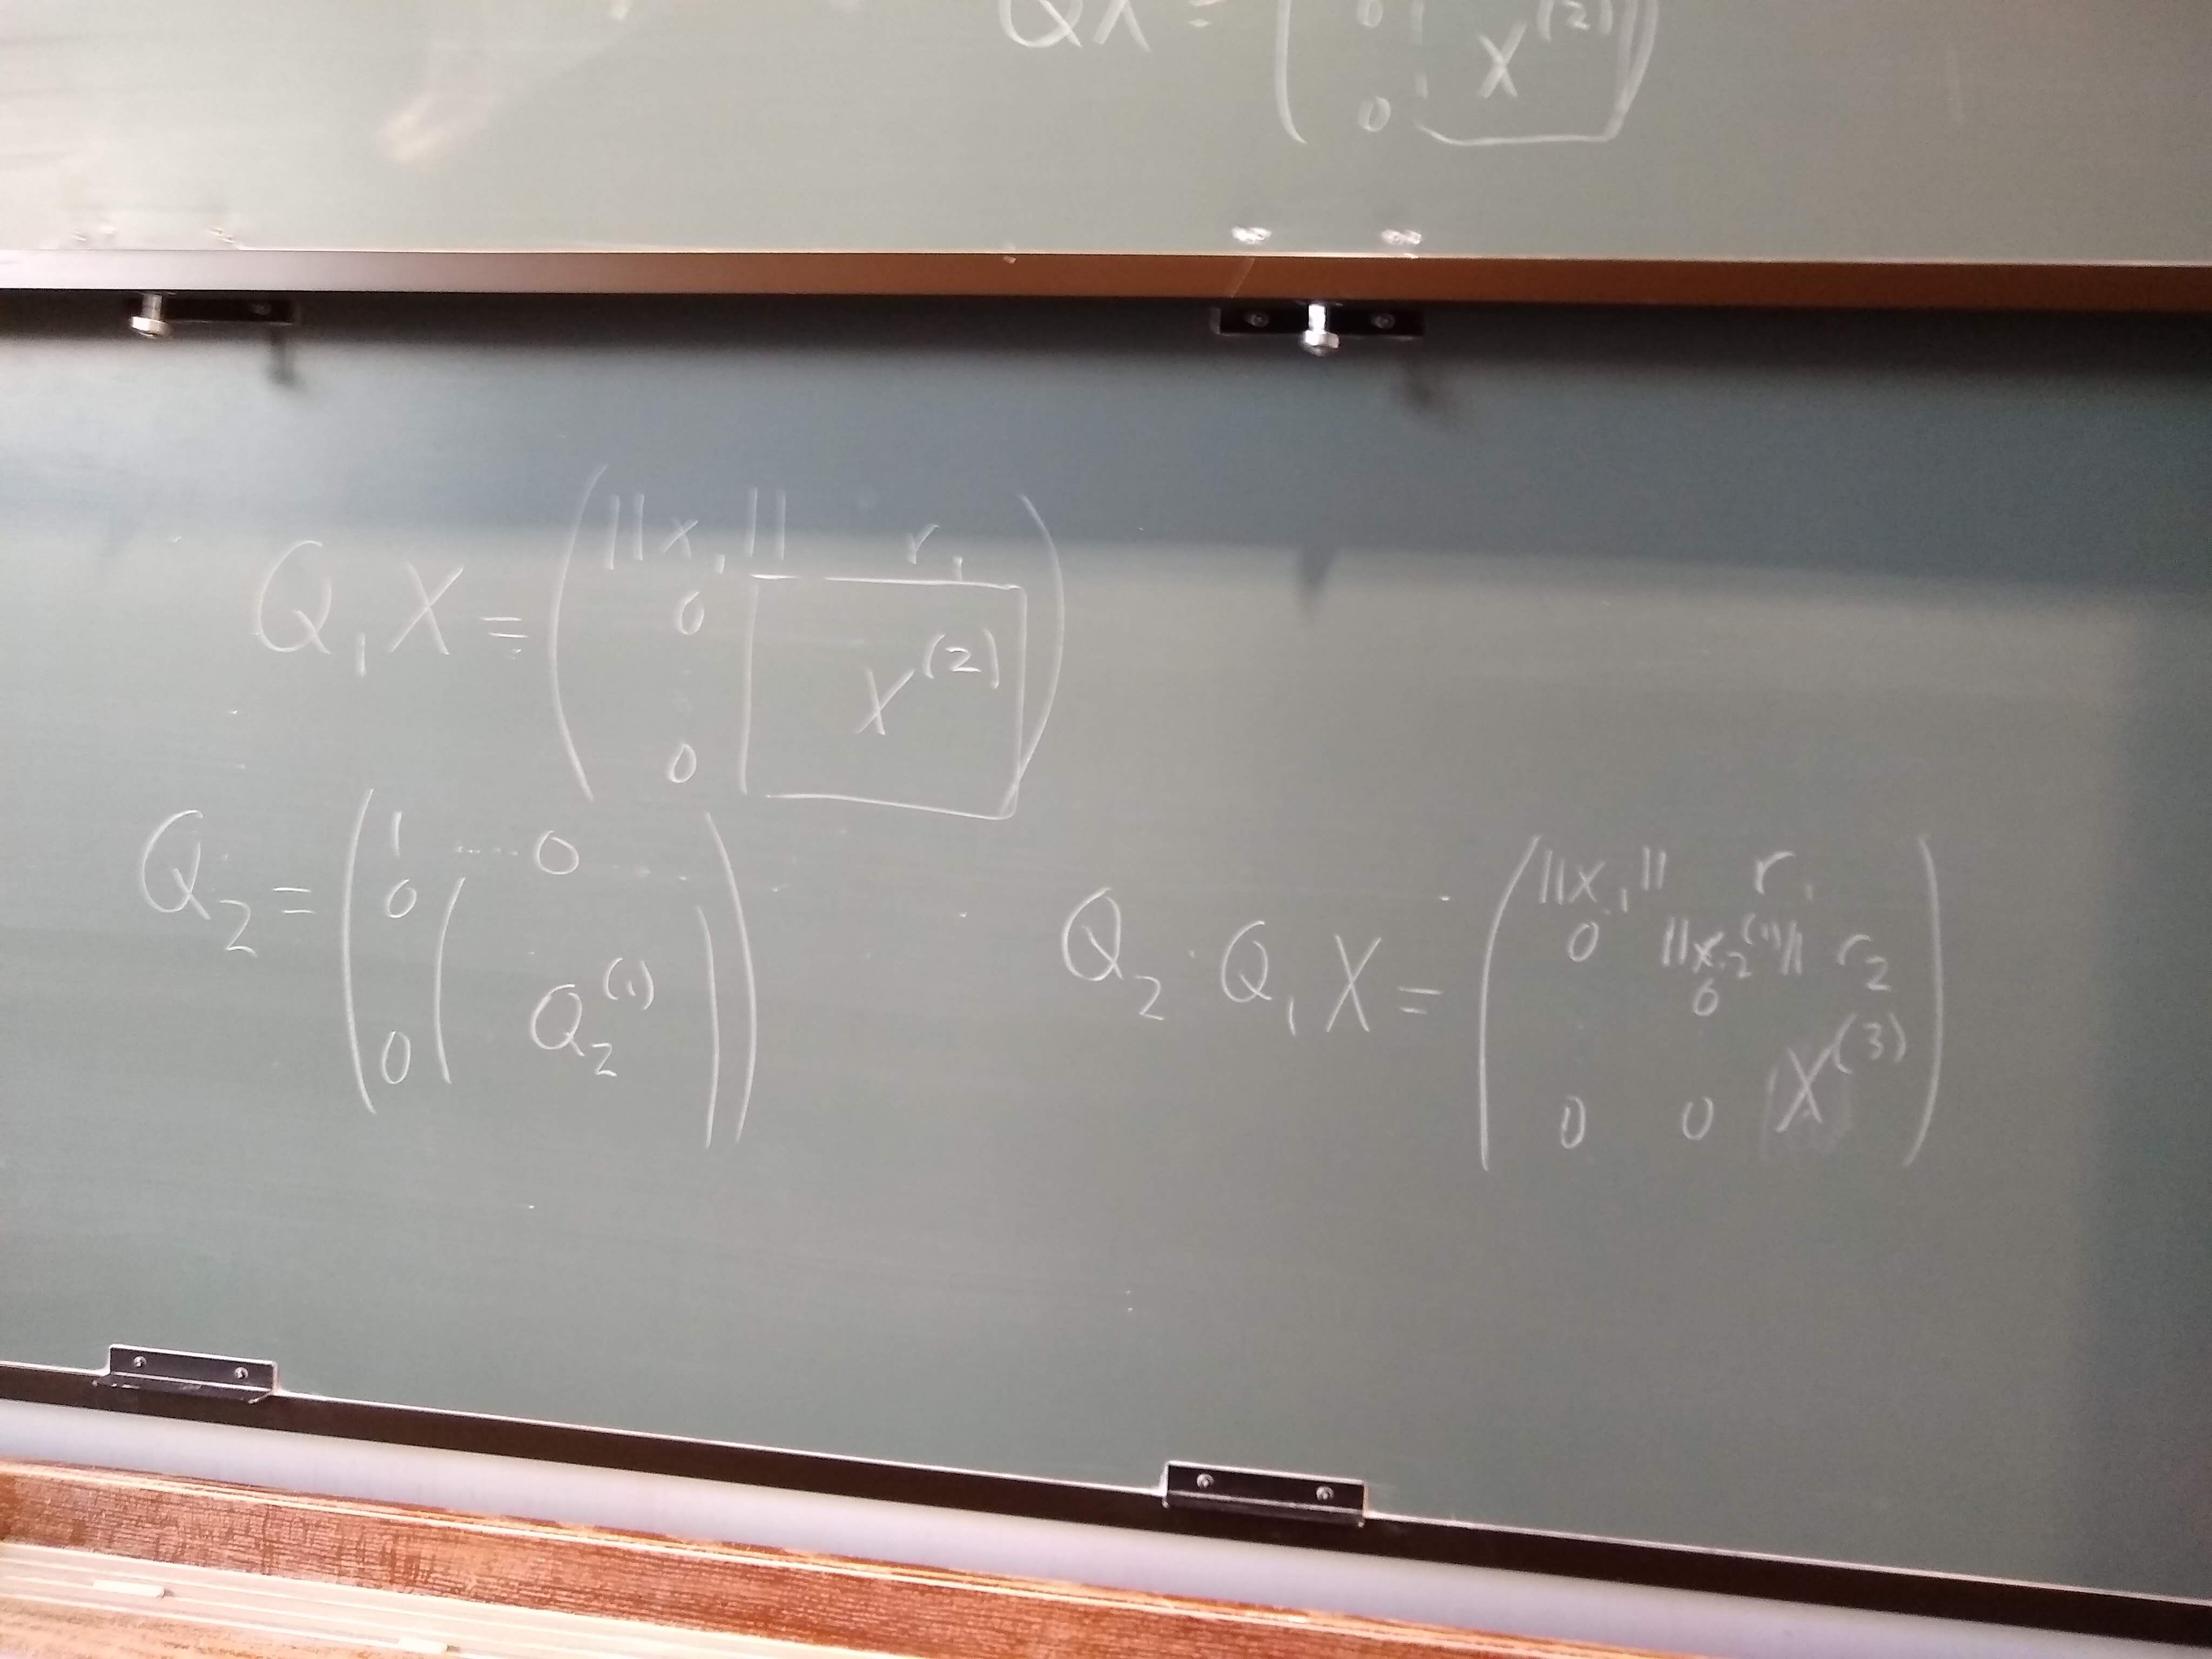 QX = ( 0 X^(2) )
0
Q₁X = ( ||x₁|| r₁ )
0
X^(2)
0
Q₂ = ( 1 .... 0 .... )
0
Q₂^(1)
0
Q₂ · Q₁X = ( ||x₁|| r₁ )
0 ||x₂^(1)|| r₂
0
X^(3)
0 0